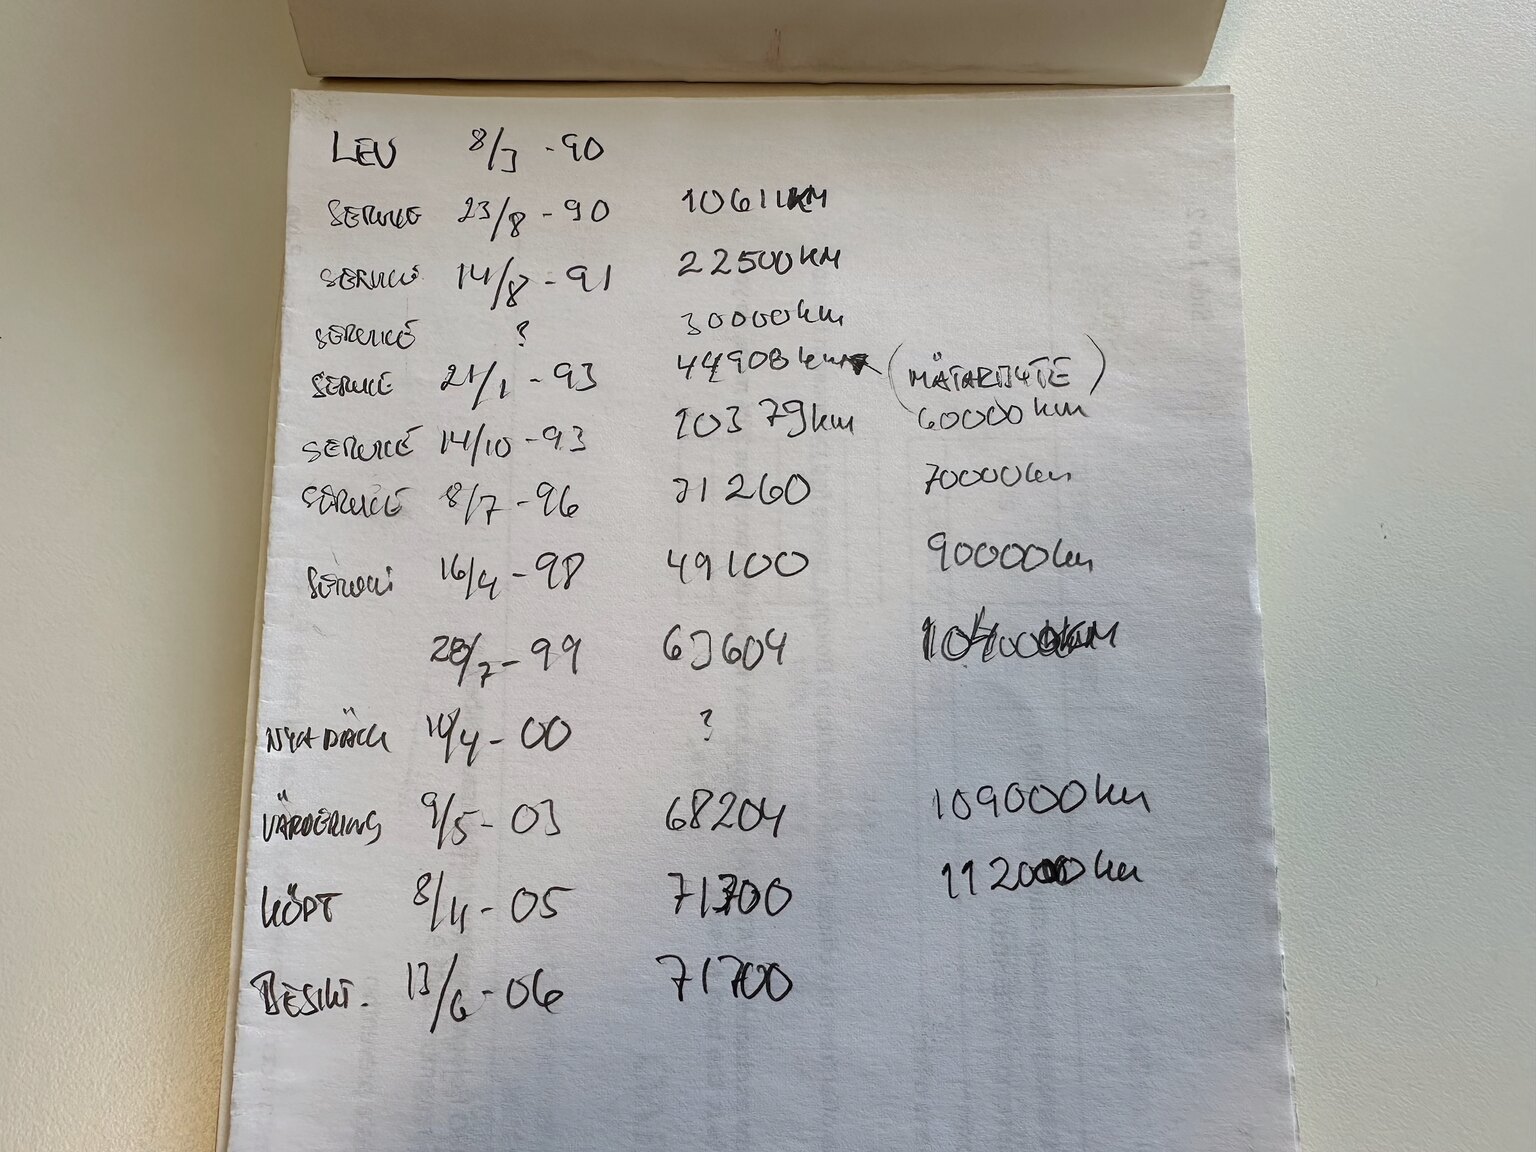 LEV 8/3 - 90
SERVICE 23/8 - 90 10611KM
SERVICE 14/8 - 91 22500KM
SERVICE ? 30000km
SERVICE 21/1 - 93 44908km (MÄTARBYTE)
SERVICE 14/10 - 93 10379km 60000km
SERVICE 8/7 - 96 21260 70000km
SERVICE 16/4 - 98 49100 90000km
28/7 - 99 63604
NYA DÄCK 10/4 - 00 ?
VÄRDERING 9/5 - 03 68204 109000km
KÖPT 8/4 - 05 71300 112000km
BESIKT. 13/6 - 06 71700